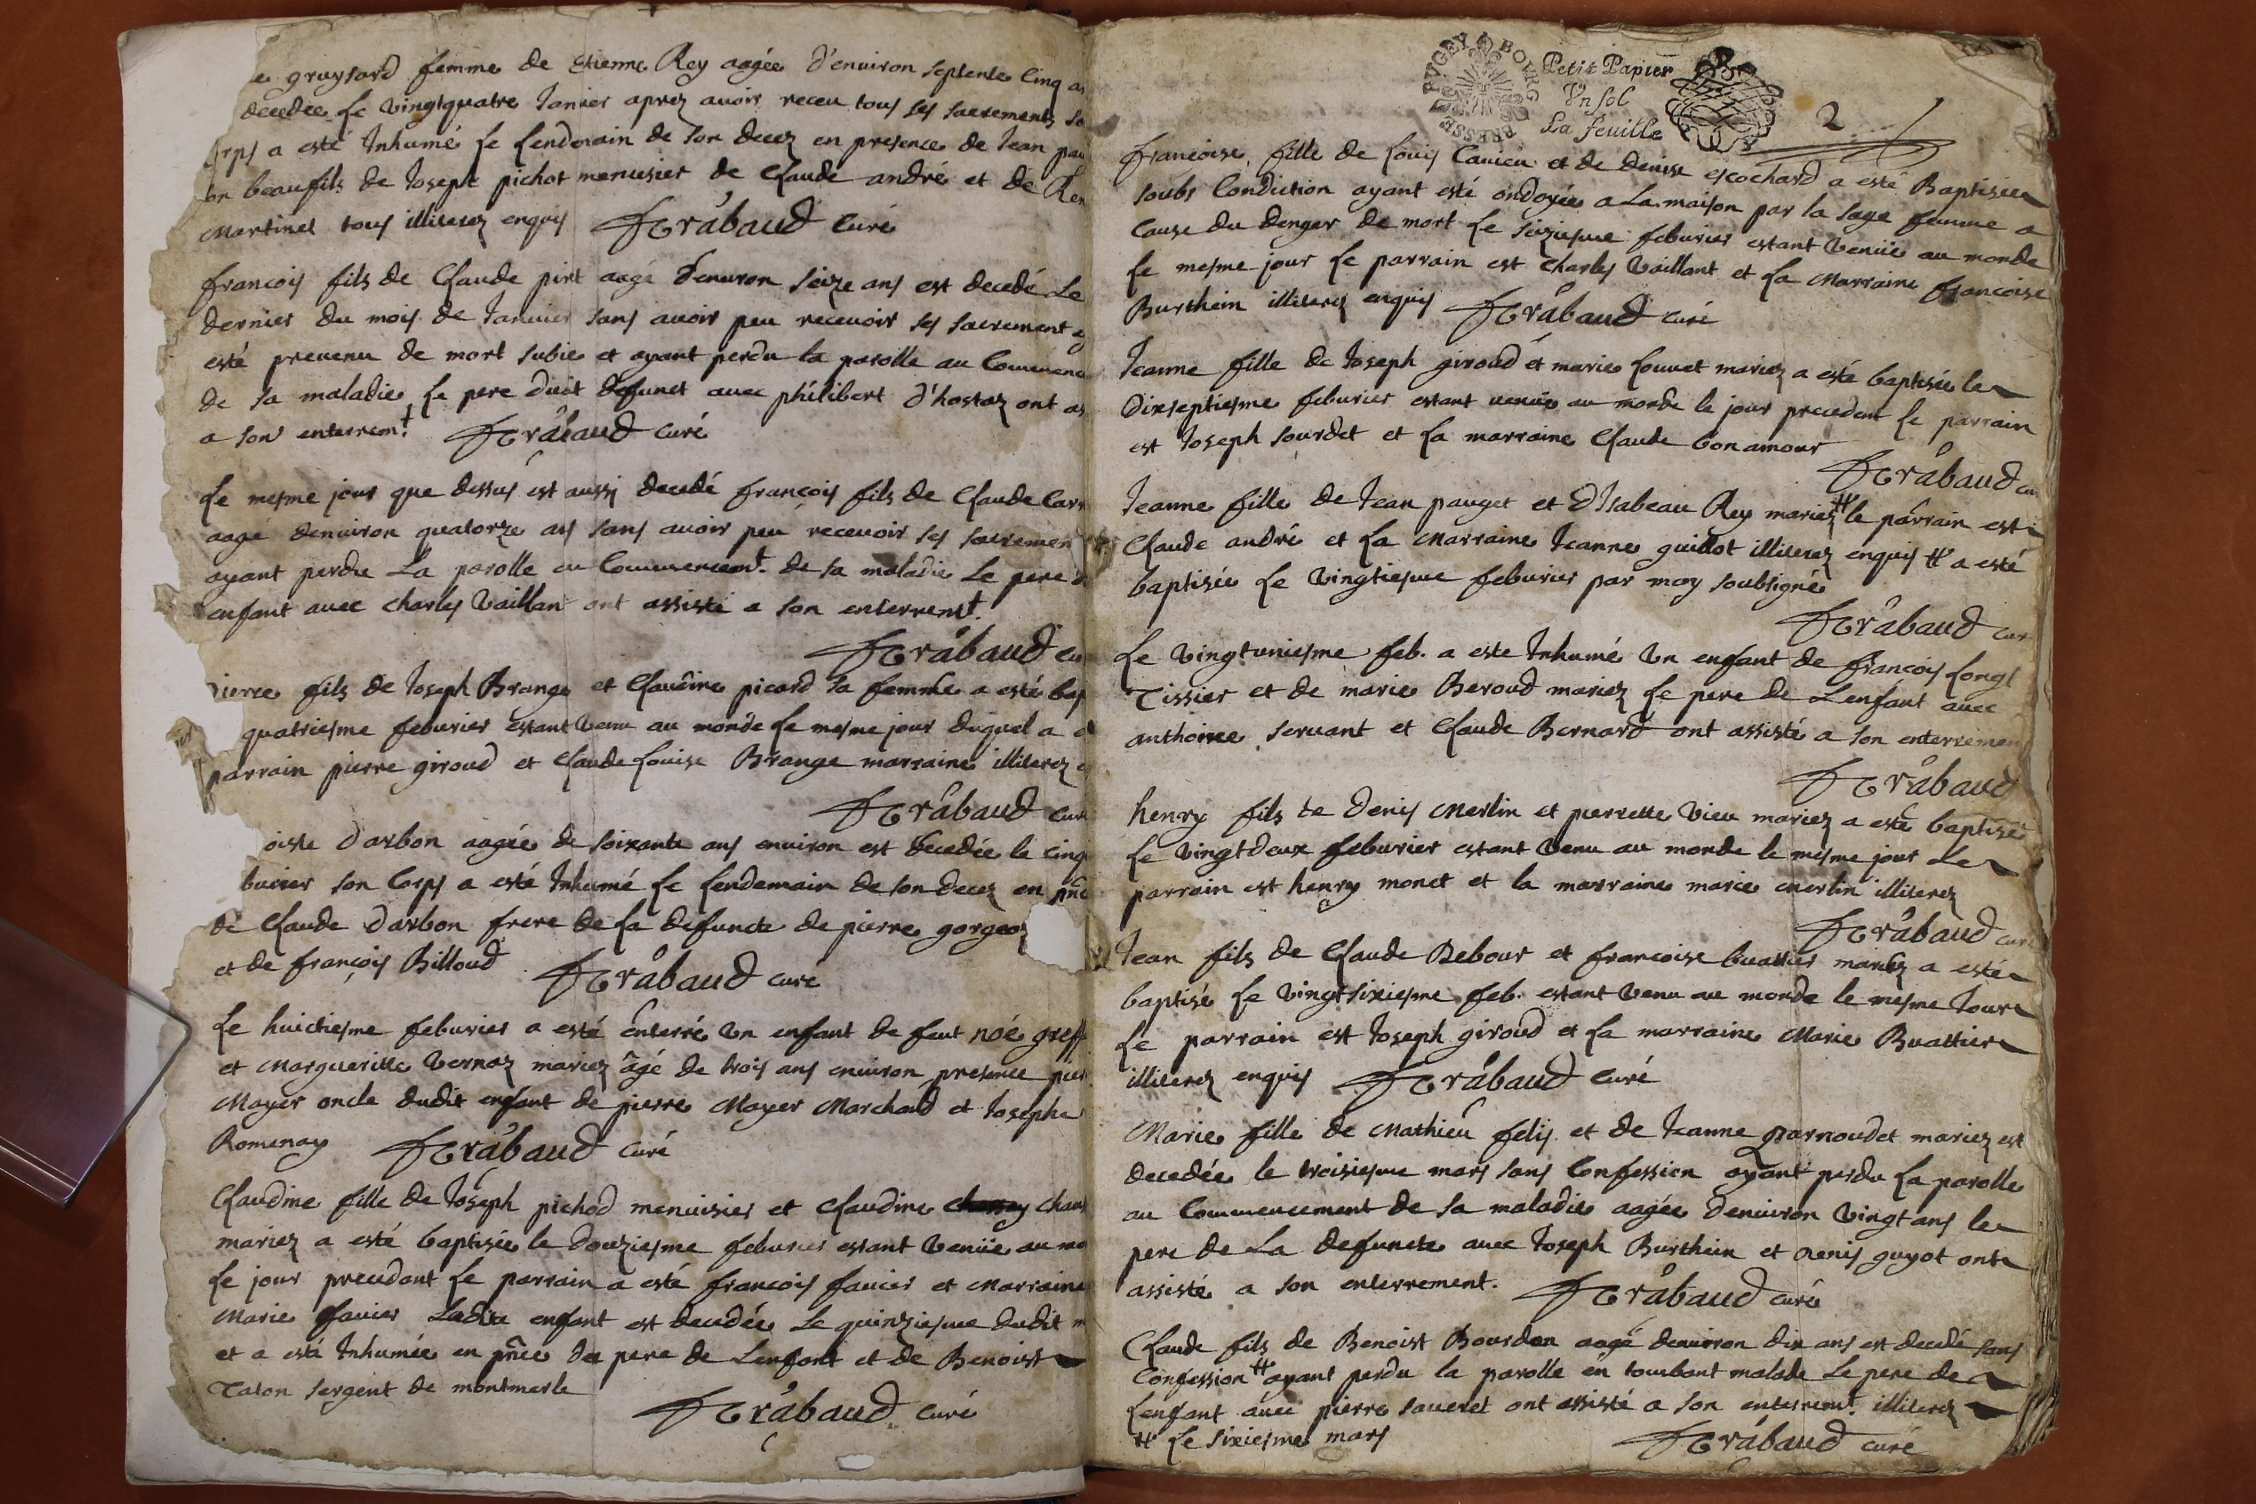 gruysard femme de Etienne Rey aagée d'environ septente cinq
decedée le vingtquatre Janvier aprez avoir receu tous ses sacrements
a esté Inhumé le lendemain de son decez en presence de Jean
beaufils de Joseph pichot menusier de Claude andré et de
Martinet tous illiterez enquis Trabaud curé
françois fils de Claude pirt aagé d'environ seize ans est decedé Le
dernier du mois de Janvier sans avoir peu recevoir ses sacrement
esté prevenu de mort subie et ayant perdu la parolle au
de sa maladie, le pere dudit defunct avec philibert d'hostaz ont
a son enterremt Trabaud curé
Le mesme jour que dessus est aussi decedé françois fils de Claude
aagé denviron quatorze ans sans avoir peu recevoir ses sacremen
ayant perdu La parolle au Commencemt. de sa maladie Le pere
enfant avec charles Vaillant ont assisté a son enterremt.
Trabaud
fils de Joseph Brange et Claudine picard sa femme a esté
quatriesme feburier estant Venu au monde le mesme jour duquel a
parrain pierre giroud et Claude Louise Brange marraine illiterez
Trabaud
Darbon aagée de soixante ans environ est decedée le cinq
son Corps a esté Inhumé le lendemain de son decez en
de Claude Darbon frere de la defuncte de pierre gorgeo
et de françois Billoud Trabaud curé
Le huictiesme feburier a esté enterré Un enfant de feut noé
et Marguerite Vernaz mariez âgé de trois ans environ presence
Mayer oncle dudit enfant de pierre Mayer Marchand et Josephe
Romenay Trabaud curé
Claudine fille de Joseph pichod menuisier et Claudine
mariez a esté baptisée le douziesme feburier estant Venüe au
le jour precedant le parrain a esté françois favier et Marraine
Marie favier Ladite enfant est decedée Le quinziesme dudit
et a esté Inhumée en pnce du pere de Lenfant et de Benoist
Taton sergent de montmerle
Trabaud curé
BUGEY BOURG BRESSE
Petit Papier
Un sol
La feuille
2
françoise, fille de Louis Cavieu et de Denise escochard a esté Baptisée
soubs Condiction ayant esté ondoyée a La maison par la sage femme a
Cause du Denger de mort le seiziesme feburier estant Venüe au monde
le mesme jour le parrain est Charles Vaillant et La Marraine françoise
Burthein illiterez enquis Trabaud curé
Jeanne fille de Joseph giroud et marie Louvet mariez a esté baptisée le
Dixseptiesme feburier estant venüe au monde le jour precedent le parrain
est Joseph sourdet et la marraine Claude bonamour
Trabaud
Jeanne fille de Jean pauget et D'Isabeau Rey mariez # le parrain est
Claude andré et La Marraine Jeanne guillot illiterez enquis # a esté
baptisée Le Vingtiesme feburier par moy soubsigné
Trabaud
Le Vingtuniesme feb. a este Inhumé Un enfant de françois
Tissier et de marie Beroud mariez Le pere de Lenfant avec
anthoine servant et Claude Bernard ont assisté a son enterremen
Trabaud
henry fils de Denis Merlin et perrette Vieu mariez a esté baptisé
Le Vingtdeux feburier estant Venu au monde le mesme jour Le
parrain est henry monet et la marraine marie Merlin illiterez
Trabaud curé
Jean fils de Claude Debour et françoise buattier mariez a esté
baptisé Le Vingtsixiesme feb. estant Venu au monde le mesme Jour
Le parrain est Joseph giroud et La marraine Marie Buattier
illiterez enquis Trabaud curé
Marie fille de Mathieu felis et de Jeanne parnoudet mariez est
decedée le troisiesme mars sans Confession ayant perdu La parolle
au Commencement de sa maladie aagée denviron Vingt ans le
pere de La defuncte avec Joseph Burthein et Denis guyot ont
assisté a son enterrement. Trabaud curé
Claude fils de Benoist Bourdon aagé denviron dix ans est decedé sans
Confession # ayant perdu la parolle en tombant malade Le pere de
Lenfant avec pierre saveret ont assisté a son enterremt. illiterez
# Le sixiesme mars Trabaud curé